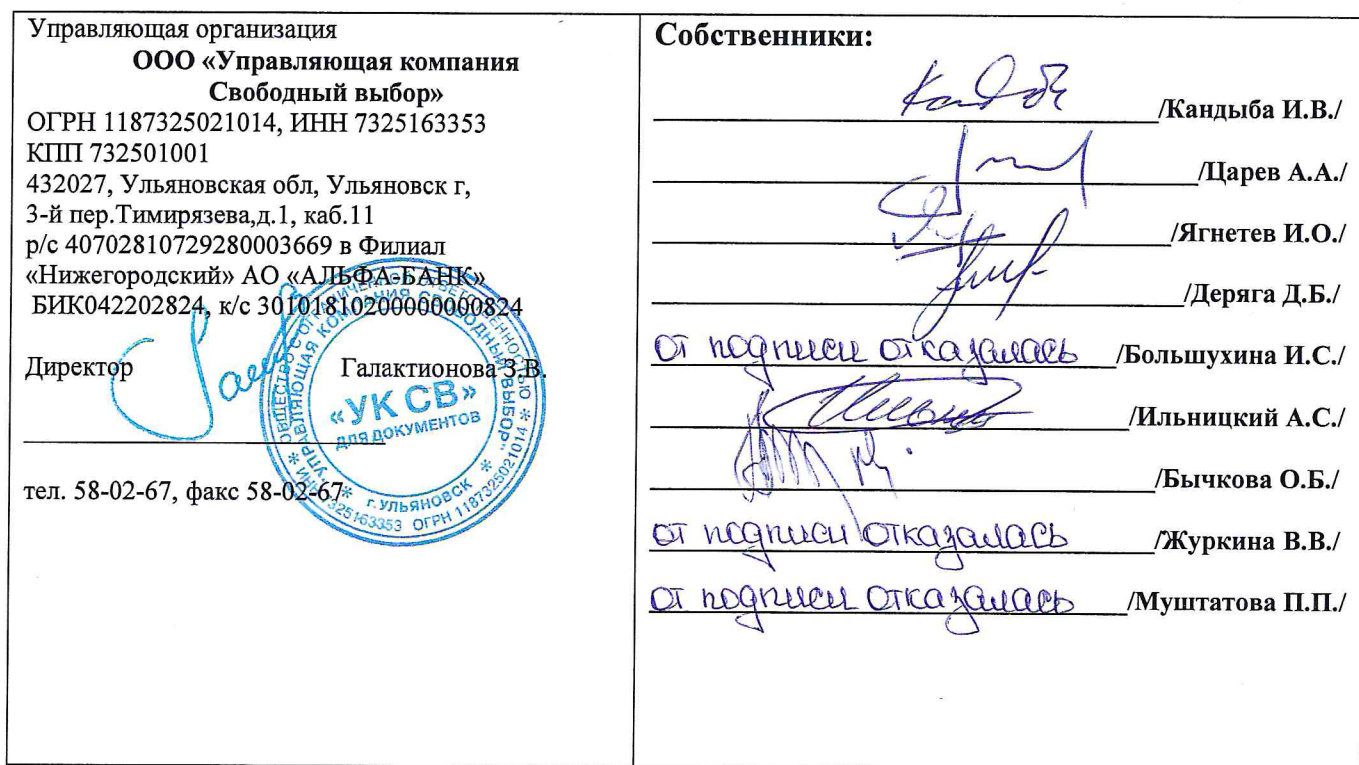 Управляющая организация
ООО «Управляющая компания
Свободный выбор»
ОГРН 1187325021014, ИНН 7325163353
КПП 732501001
432027, Ульяновская обл, Ульяновск г,
3-й пер.Тимирязева,д.1, каб.11
р/с 40702810729280003669 в Филиал
«Нижегородский» АО «АЛЬФА-БАНК»
БИК042202824, к/с 30101810200000000824
Директор Галактионова З.В.
тел. 58-02-67, факс 58-02-67
ОБЩЕСТВО С ОГРАНИЧЕННОЙ ОТВЕТСТВЕННОСТЬЮ
УПРАВЛЯЮЩАЯ КОМПАНИЯ СВОБОДНЫЙ ВЫБОР"
«УК СВ»
ДЛЯ ДОКУМЕНТОВ
г. УЛЬЯНОВСК
ИНН 7325163353 ОГРН 1187325021014
Собственники:
/Кандыба И.В./
/Царев А.А./
/Ягнетев И.О./
/Деряга Д.Б./
от подписи отказалась /Большухина И.С./
/Ильницкий А.С./
/Бычкова О.Б./
от подписи отказалась /Журкина В.В./
от подписи отказалась /Муштатова П.П./